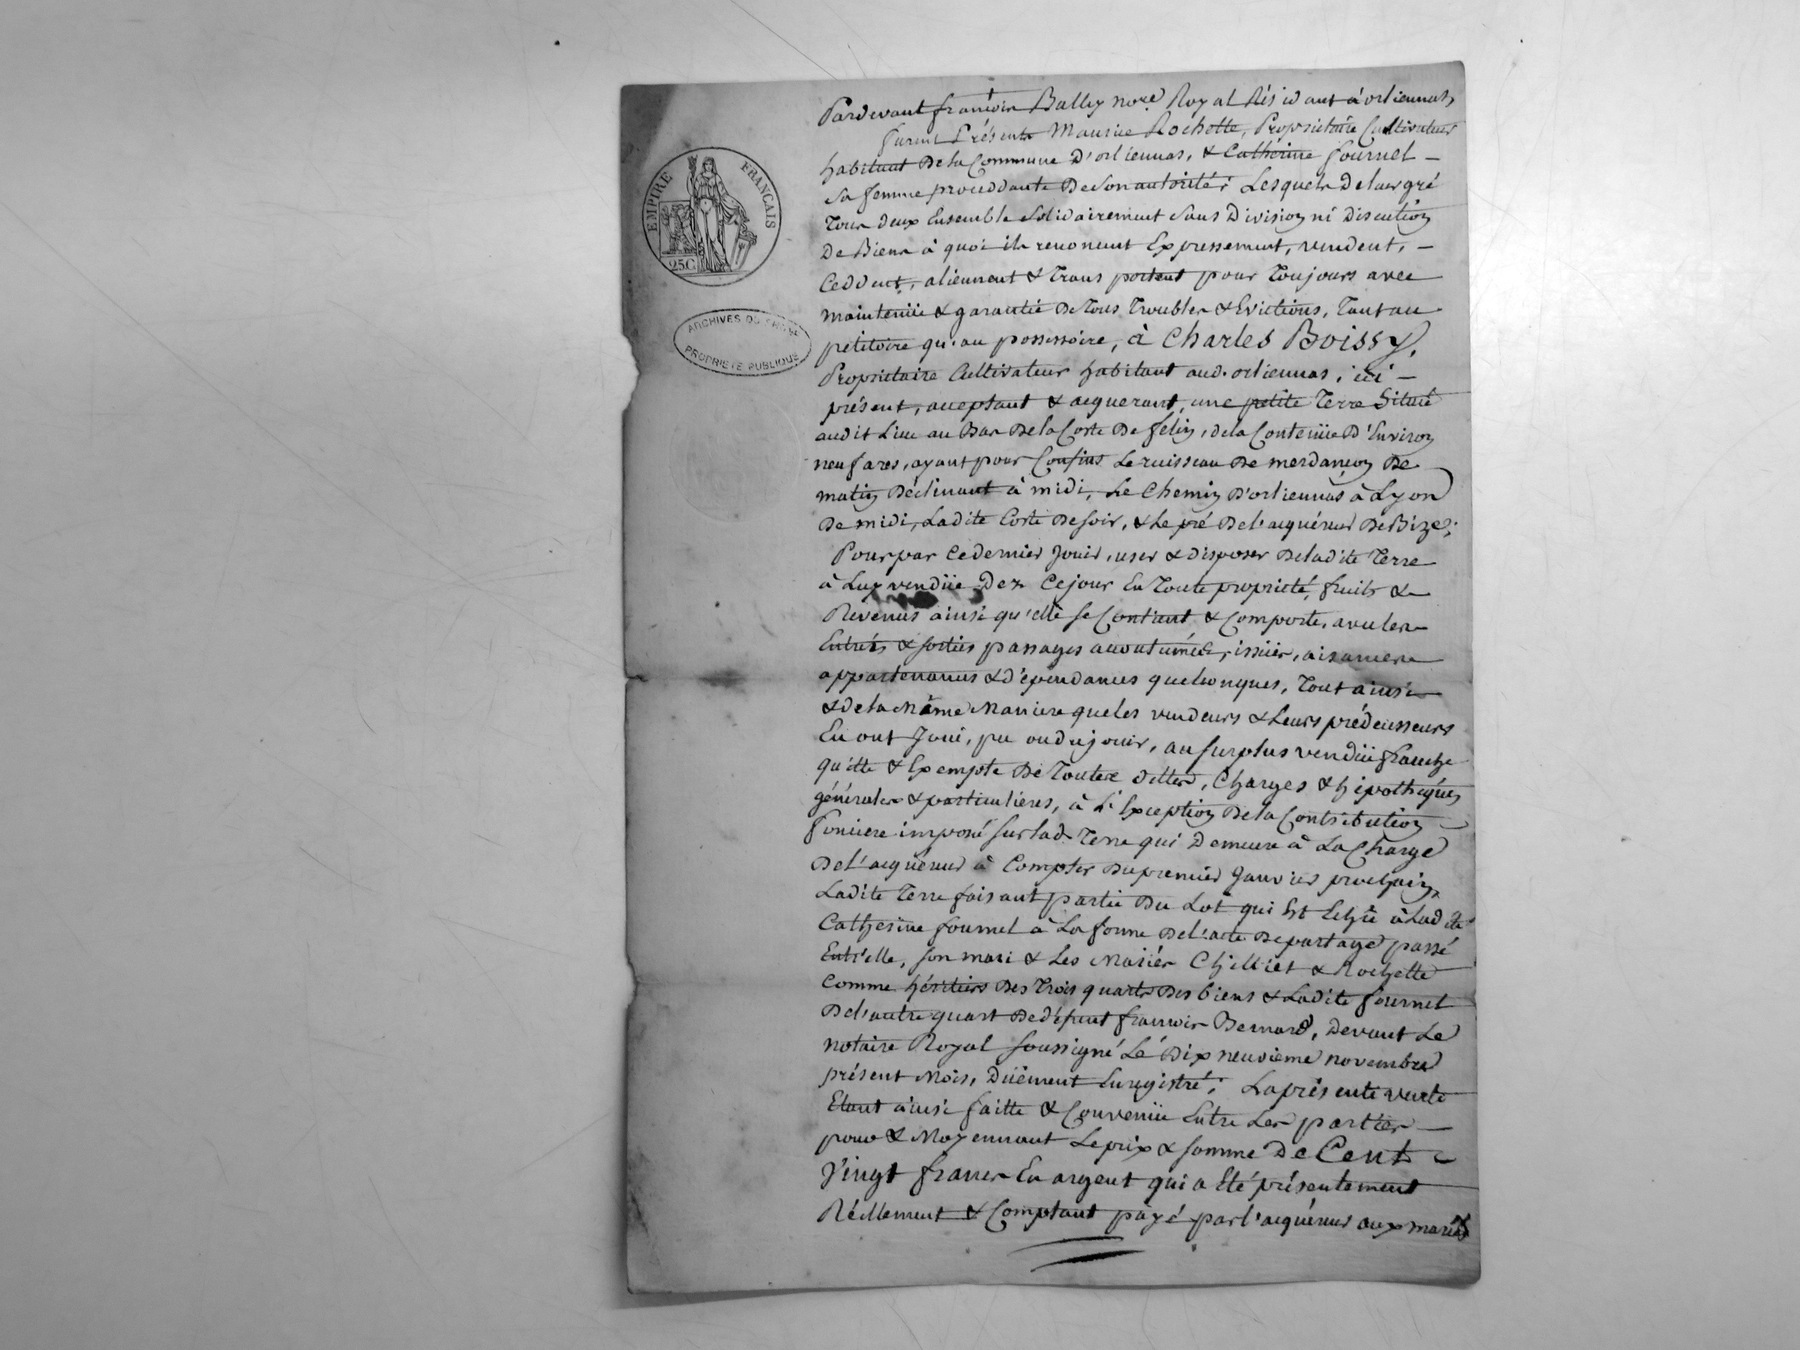 EMPIRE FRANÇAIS
25C
ARCHIVES DU
PROPRIÉTÉ PUBLIQUE
Pardevant françois Bally no.re Royal Résidant à orliennas,
furent Présents Maurice Rochette, Propriétaire Cultivateur
habitant De la Commune D'orliennas, & Catherine fournel –
Sa femme proceddante De Son autorité; Lesquels De leur gré
Tous deux Ensemble Solidairement Sans Division ni Discution
De Biens à quoi ils renoncent Expressement, vendent, –
Ceddent, aliennent & Transportent pour Toujours avec
maintenüe & garantie De Tous Troubles & Evictions, Tant au
petitoire qu'au possessoire, à Charles Boissy,
Propriétaire Cultivateur habitant aud. orliennas, ici –
présent, acceptant & acquerant, une petite Terre Située
audit Lieu au Bas De la Coste De felin, de la Contenüe D'Environ
neuf ares, ayant pour Confins Le ruisseau De merdançon De
matin Déclinant à midi, Le Chemin D'orliennas à Lyon
De midi, Ladite Coste De soir, & Le pré De l'acquéreur De Bize;
Pour par Ce dernier Jouir, user & disposer De ladite Terre
à Luy vendüe Dez Ce jour En Toute propriété, fruits &
Revenus ainsi qu'elle Se Contient & Comporte, avec ses
Entrées & sorties passages accoutumées, issües, aisances
appartenances & dépendances quelconques, Tout ainsi
& de la Même Maniere que les vendeurs & Leurs prédécesseurs
En ont Joui, pu ou du jouir, au surplus vendüe franche
quitte & Exempte De Toutes dettes, Charges & hipothéques
générales & particulières, à L'Exception De la Contribution
fonciere imposé sur lad. Terre qui Demeure à La Charge
De l'acquéreur à Compter Du premier Janvier prochain,
Ladite Terre faisant partie Du Lot qui Est Echü à Ladite
Catherine fournel à La forme De l'acte De partage passé
Entr'elle, son mari & Les Mariés Chilliet & Rochette
Comme héritiers Des Trois quarts Des biens & Ladite fournel
De l'autre quart De défunt françois Bernard, Devant Le
notaire Royal soussigné Le Dix neuvième novembre
présent Mois, Düement Enregistré; La présente vente
Etant ainsi faitte & Convenüe Entre Les parties –
pour & Moyennant Le prix & somme De Cent
Vingt francs En argent qui a Eté présentement
Réellement & Comptant payé par l'acquéreur aux mariés